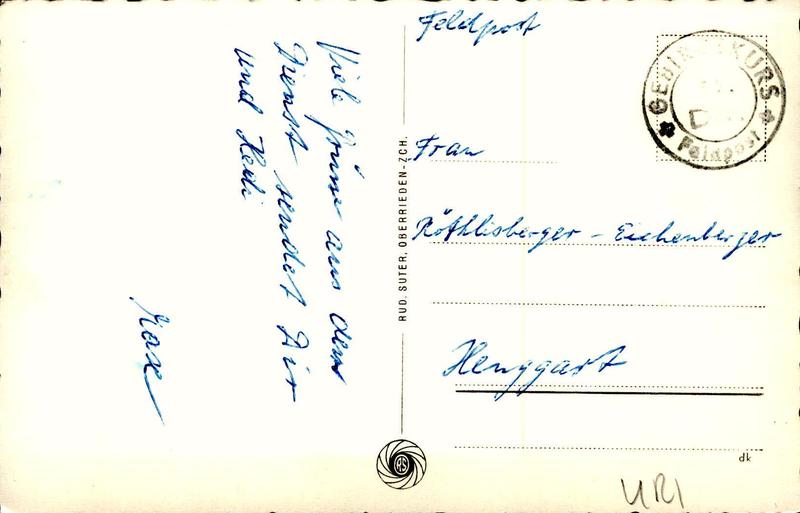 Feldpost
GEBIRGSKURS
Feldpost
Frau
Röthlisberger - Eichenberger
Henggart
Viele Grüsse aus dem
Dienst sendet Dir
und Hedi
Max
RUD. SUTER, OBERRIEDEN-ZCH.
RS
dk
URI